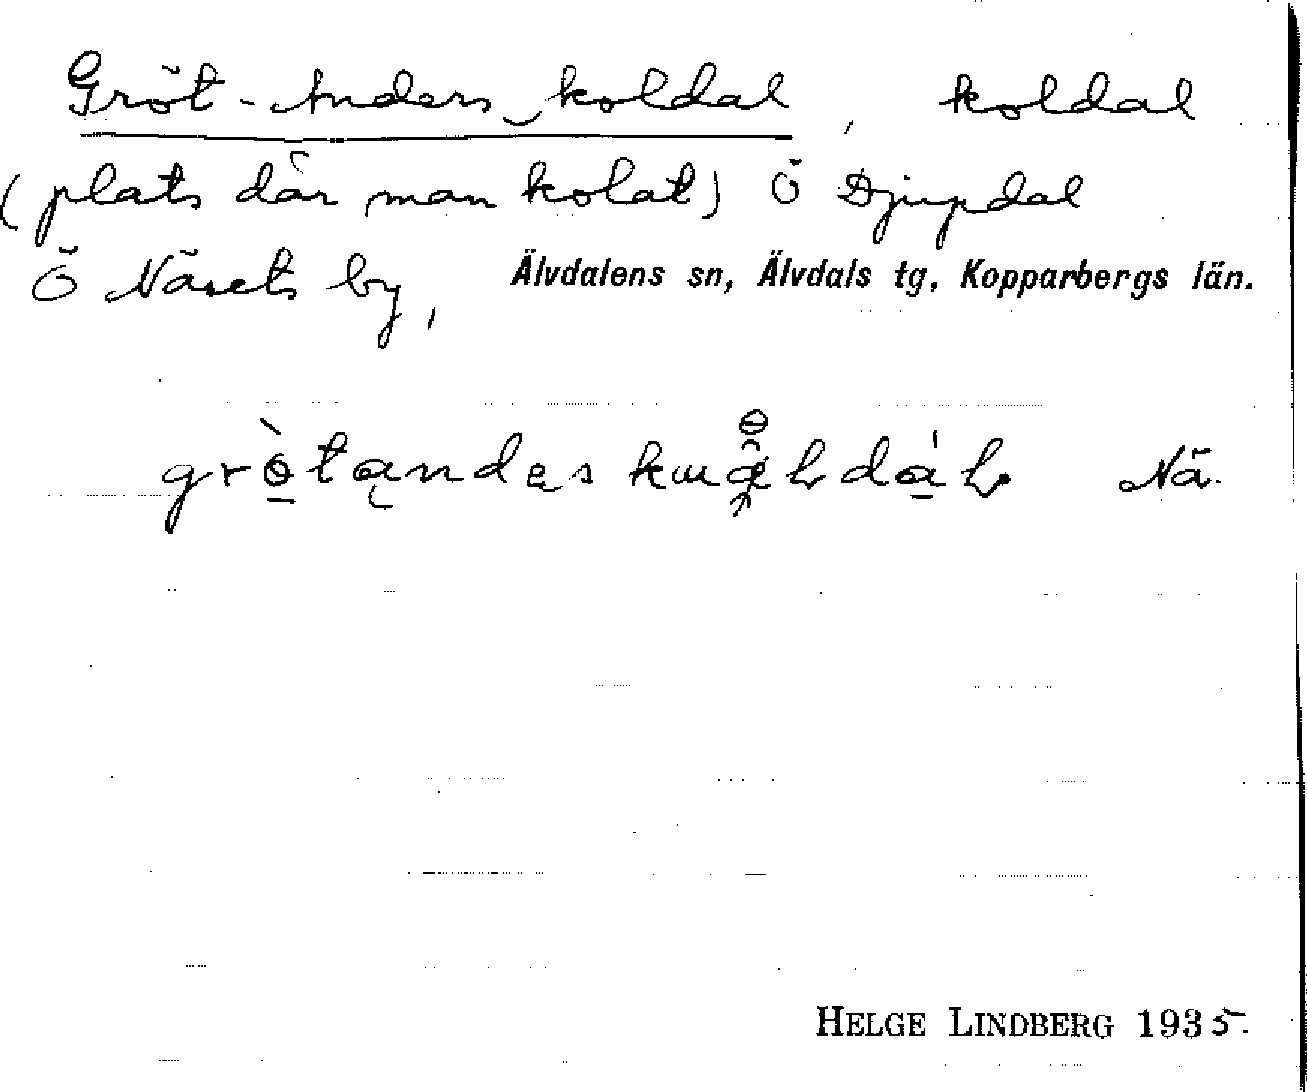 Gröt-Anders koldal, koldal
(plats där man kolat) Ö Djupdal
Ö Näsets by, Älvdalens sn, Älvdals tg, Kopparbergs län.
Nä.
HELGE LINDBERG 1935.